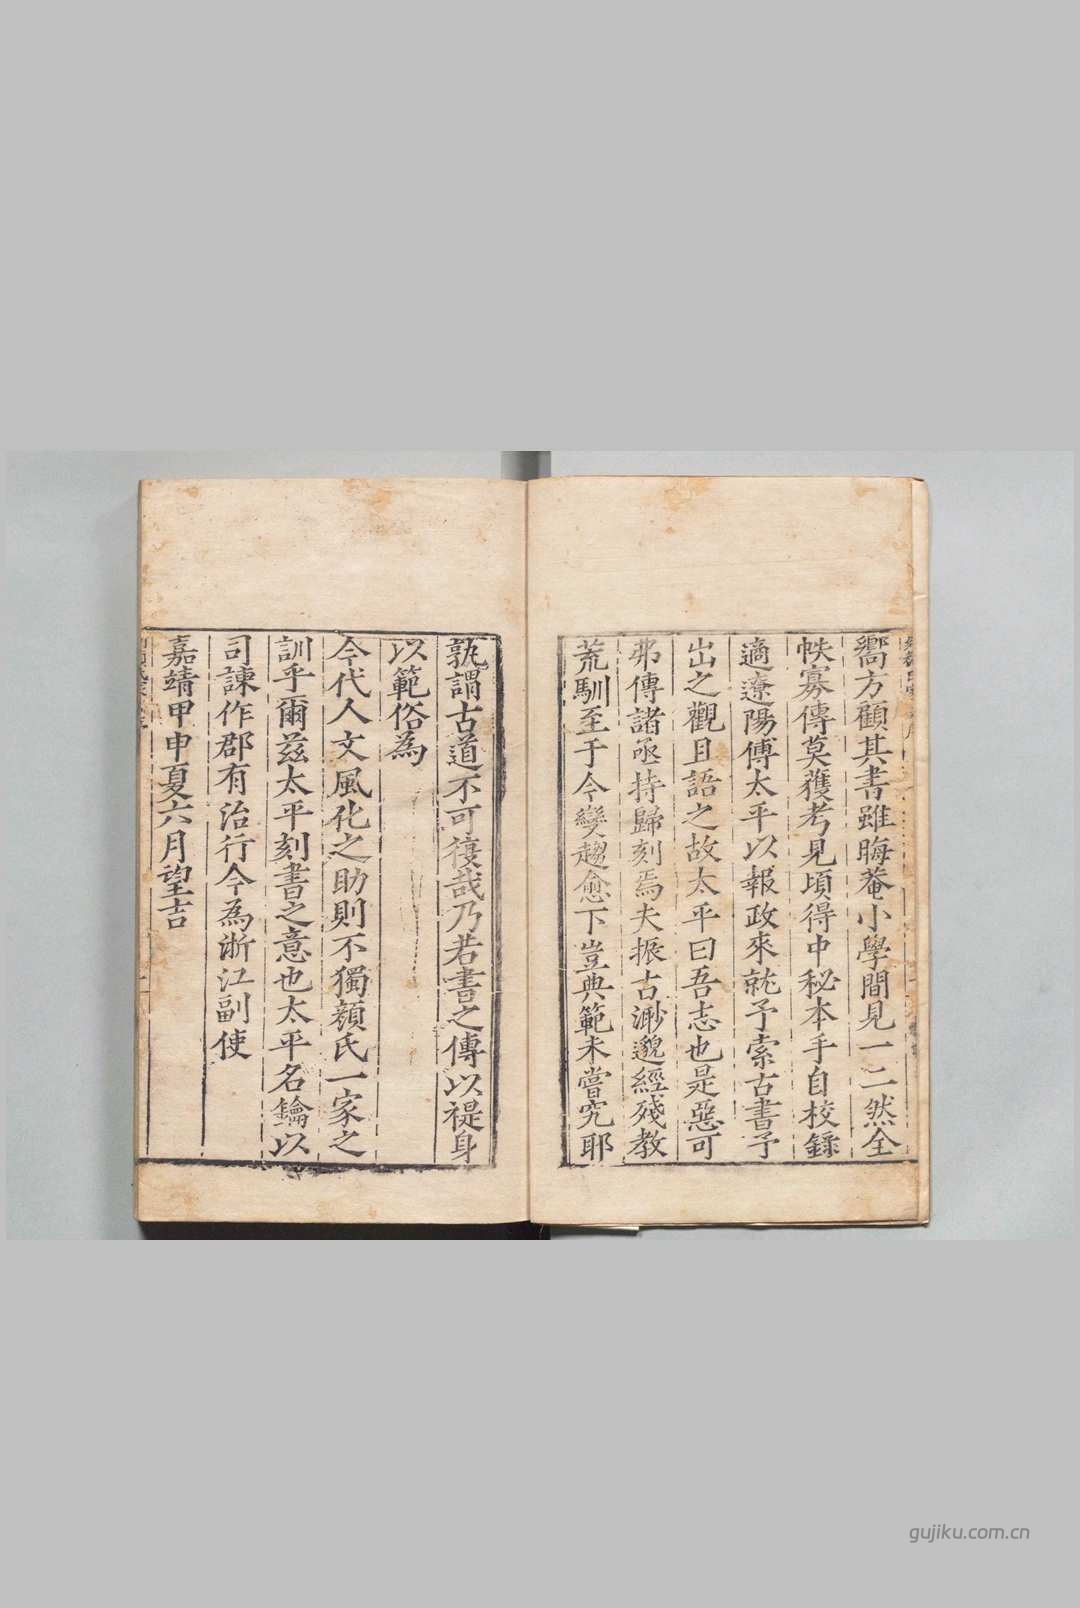 嚮方顧其書雖晦菴小學間見一二然全
帙寡傳莫獲考見頃得中秘本手自校錄
適遼陽傅太平以報政來就予索古書予
出之觀且語之故太平曰吾志也是惡可
弗傳諸亟持歸刻焉夫振古渺邈經殘教
荒馴至于今變趨愈下豈典範未嘗究耶
孰謂古道不可復哉乃若書之傳以禔身
以範俗為
今代人文風化之助則不獨顏氏一家之
訓乎爾茲太平刻書之意也太平名鑰以
司諫作郡有治行今為浙江副使
嘉靖甲申夏六月望吉
gujiku.com.cn